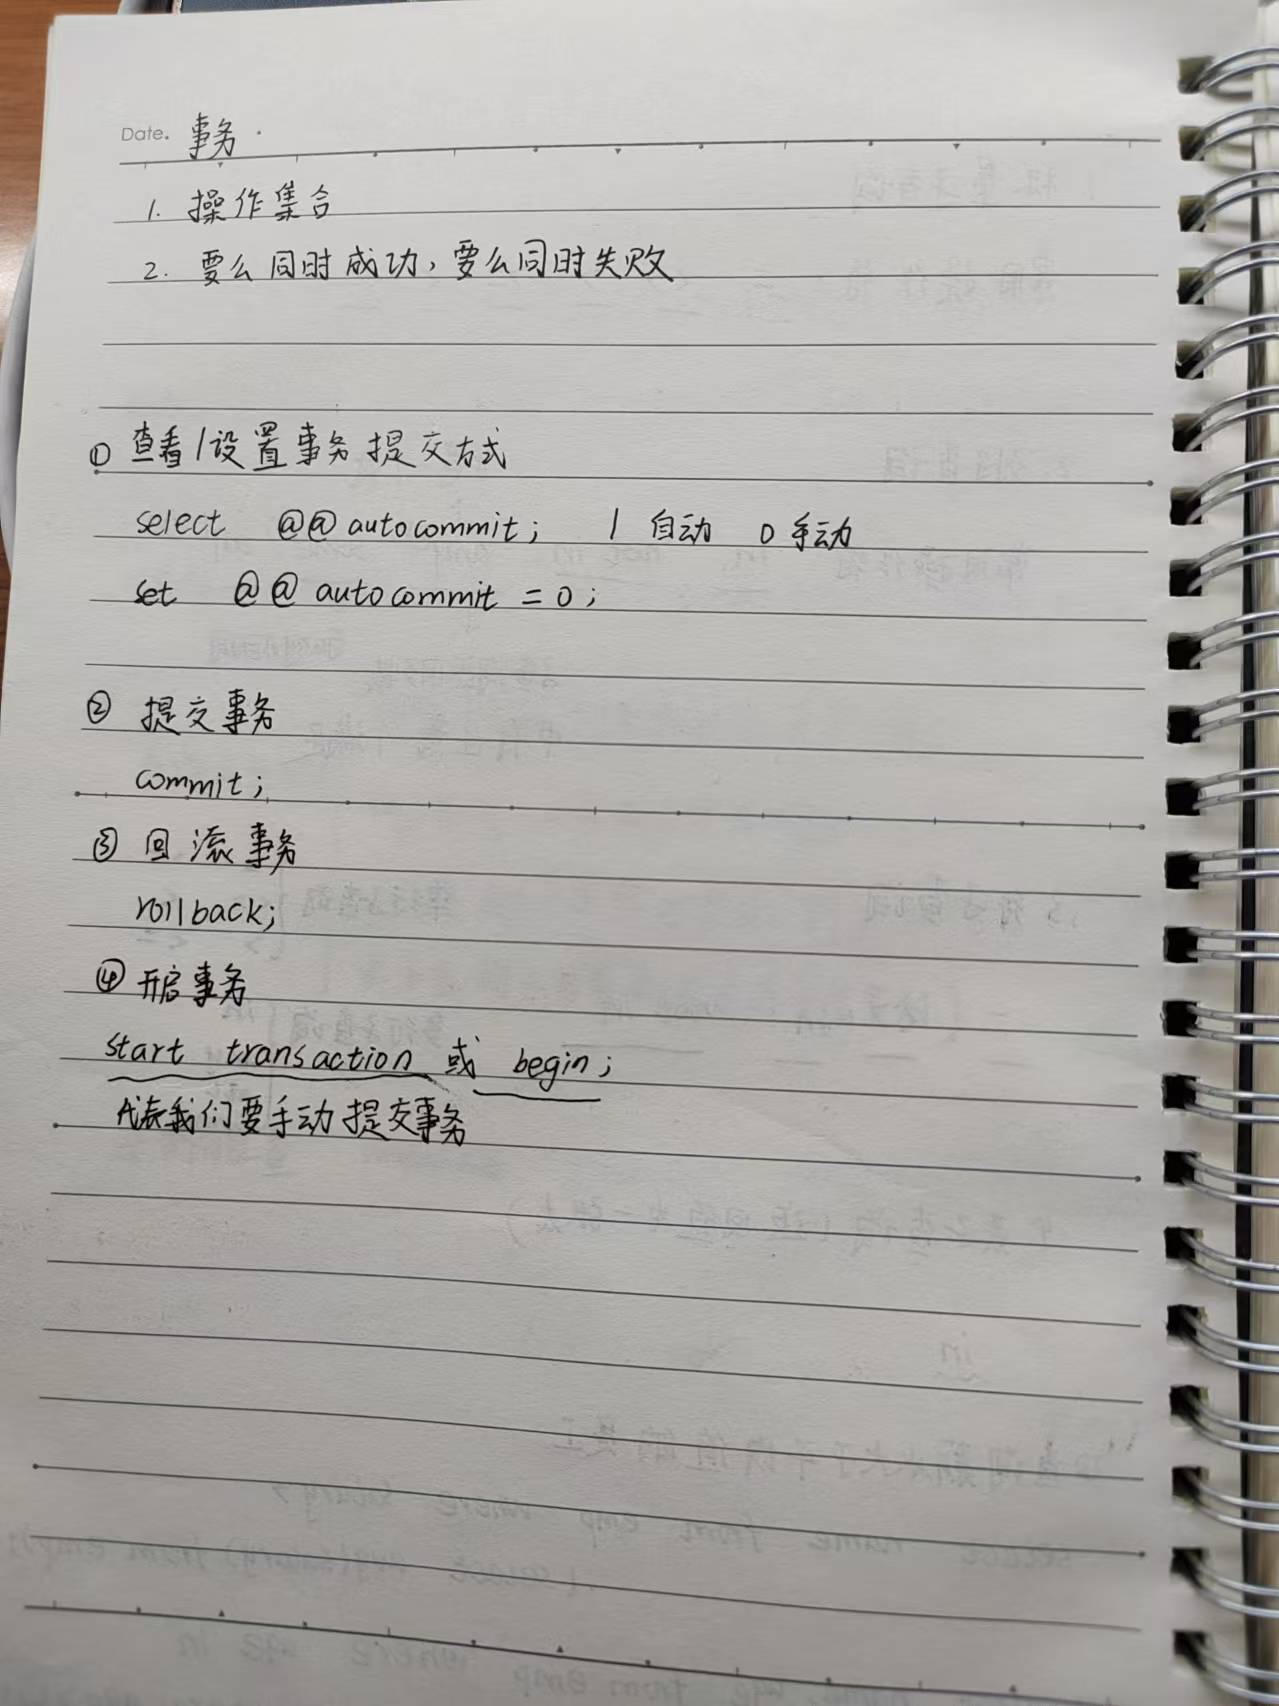 Date. 事务
1. 操作集合
2. 要么同时成功，要么同时失败
① 查看/设置事务提交方式
select @@autocommit; 1 自动 0 手动
set @@autocommit = 0;
② 提交事务
commit;
③ 回滚事务
rollback;
④ 开启事务
start transaction 或 begin;
代表我们要手动提交事务